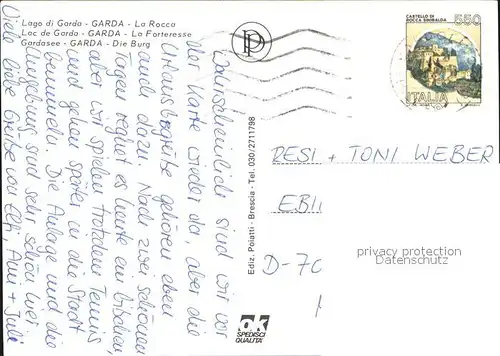 Lago di Garda - GARDA - La Rocca
Lac de Garda - GARDA - La Forteresse
Gardasee - GARDA - Die Burg
CASTELLO DI
ROCCA SINIBALDA
550
ITALIA
Wahrscheinlich sind wir vor
der Karte wieder da, aber die
Urlaubsgrüße gehören eben
auch dazu. Nach zwei schönen
Tagen regnet es heute ein bißchen,
aber wir spielen trotzdem Tennis
und gehen später in die Stadt
bummeln. Die Anlage und die
Umgebung sind sehr schön hier.
Viele liebe Grüße von Elfi, + Juli
Ediz. Poiatti - Brescia - Tel. 030/2711798
ok
SPEDISCI
QUALITÀ
RESI + TONI WEBER
EBI
D-70
privacy protection
Datenschutz